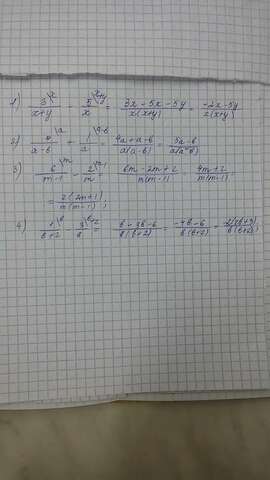 1) 3\x / x+y − 5\x+y / x = 3x − 5x − 5y / x(x+y) = −2x − 5y / x(x+y)
2) 4\a / a−b + 1\a−b / a = 4a + a − b / a(a−b) = 5a − b / a(a−b)
3) 6\m / m−1 − 2\m−1 / m = 6m − 2m + 2 / m(m−1) = 4m + 2 / m(m−1) =
= 2(2m+1) / m(m−1);
4) 1\b / b+2 − 3\b+2 / b = b − 3b − 6 / b(b+2) =